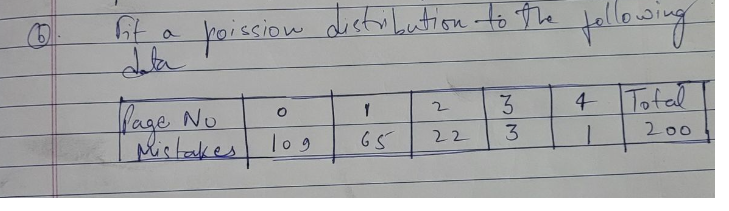 (b). Fit a poission distribution to the following
data
Page No 0 1 2 3 4 Total
Mistakes 109 65 22 3 1 200